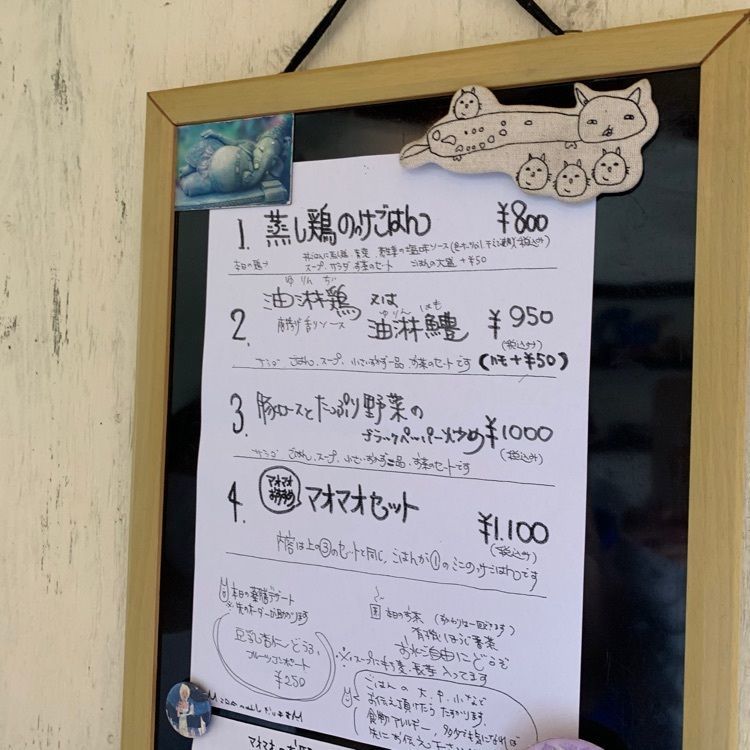 1. 蒸し鶏のっけごはん ¥800
(税込み)
スープ、サラダ、お茶のセート ごはんの大盛 +¥50
ゆ りん ちー
2. 油淋鶏 又は
ゆりん はも
唐揚げ 香りソース 油淋鱧 ¥950
(税込み)
サラダ ごはん、スープ、小さいおかず一品、お茶のセートです (ハモ+¥50)
3. 豚ロースとたっぷり野菜の
ブラックペッパー炒め ¥1000
(税込み)
サラダ ごはん、スープ、小さいおかず二品、お茶のセートです
4. マオマオおすすめ マオマオセット
¥1,100
(税込み)
内容は上の③のセットと同じ、ごはんが①のミニのっけごはんです
本日の薬膳デザート
※先のオーダーが助かります
豆乳杏仁どうふ、
フルーツコンポート
¥250
本日のお茶 (おかわりは一回できます)
有機ほうじ番茶
お水自由にどうぞ
※スープにも麦、長芋 入ってます
ごはんの 大、中、小など
お伝え頂けたら たすかります。
食物アレルギー、
先にお伝え下さい